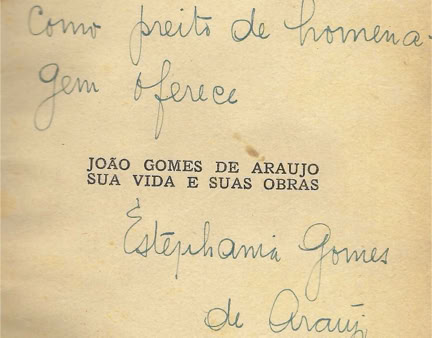 Como preito de homena-
gem oferece
JOÃO GOMES DE ARAUJO
SUA VIDA E SUAS OBRAS
Estephania Gomes
de Arauj